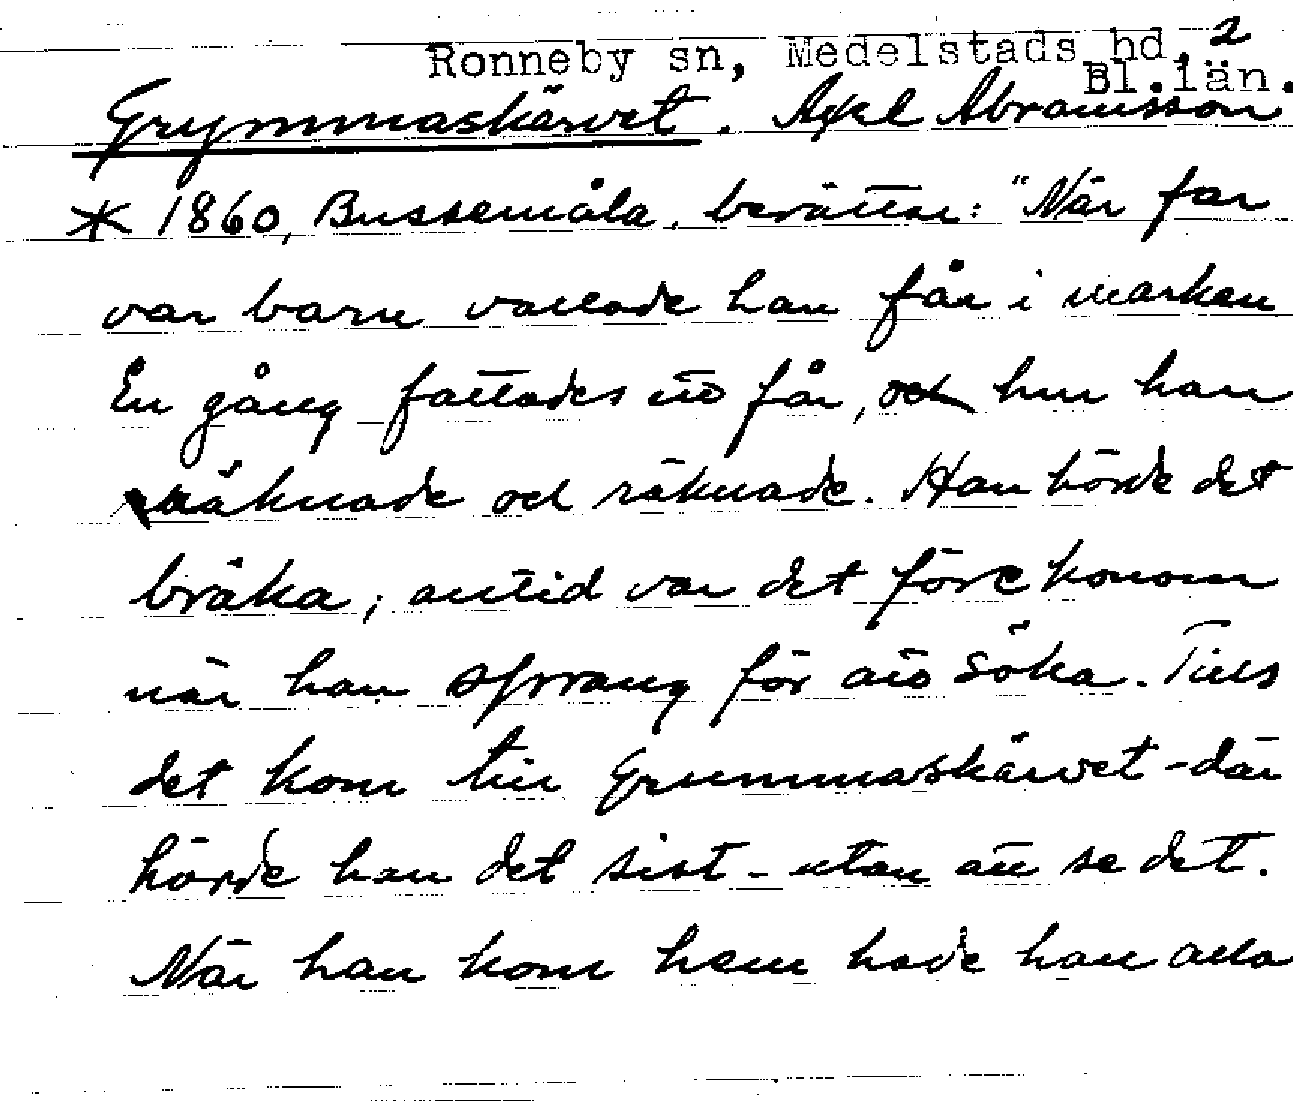 Ronneby sn, Medelstads hd, 2
Bl.län.
Grymmaskärvet. Axel Abramsson
* 1860, Bussemåla, berättar: "När far
var barn vallade han får i marken
En gång fattades ett får, och hur han
räknade och räknade. Han hörde det
bräka; alltid var det före honom
när han sprang för att söka. Tills
det kom till Grummaskärvet - där
hörde han det sist - utan att se det.
När han kom hem hade han alla